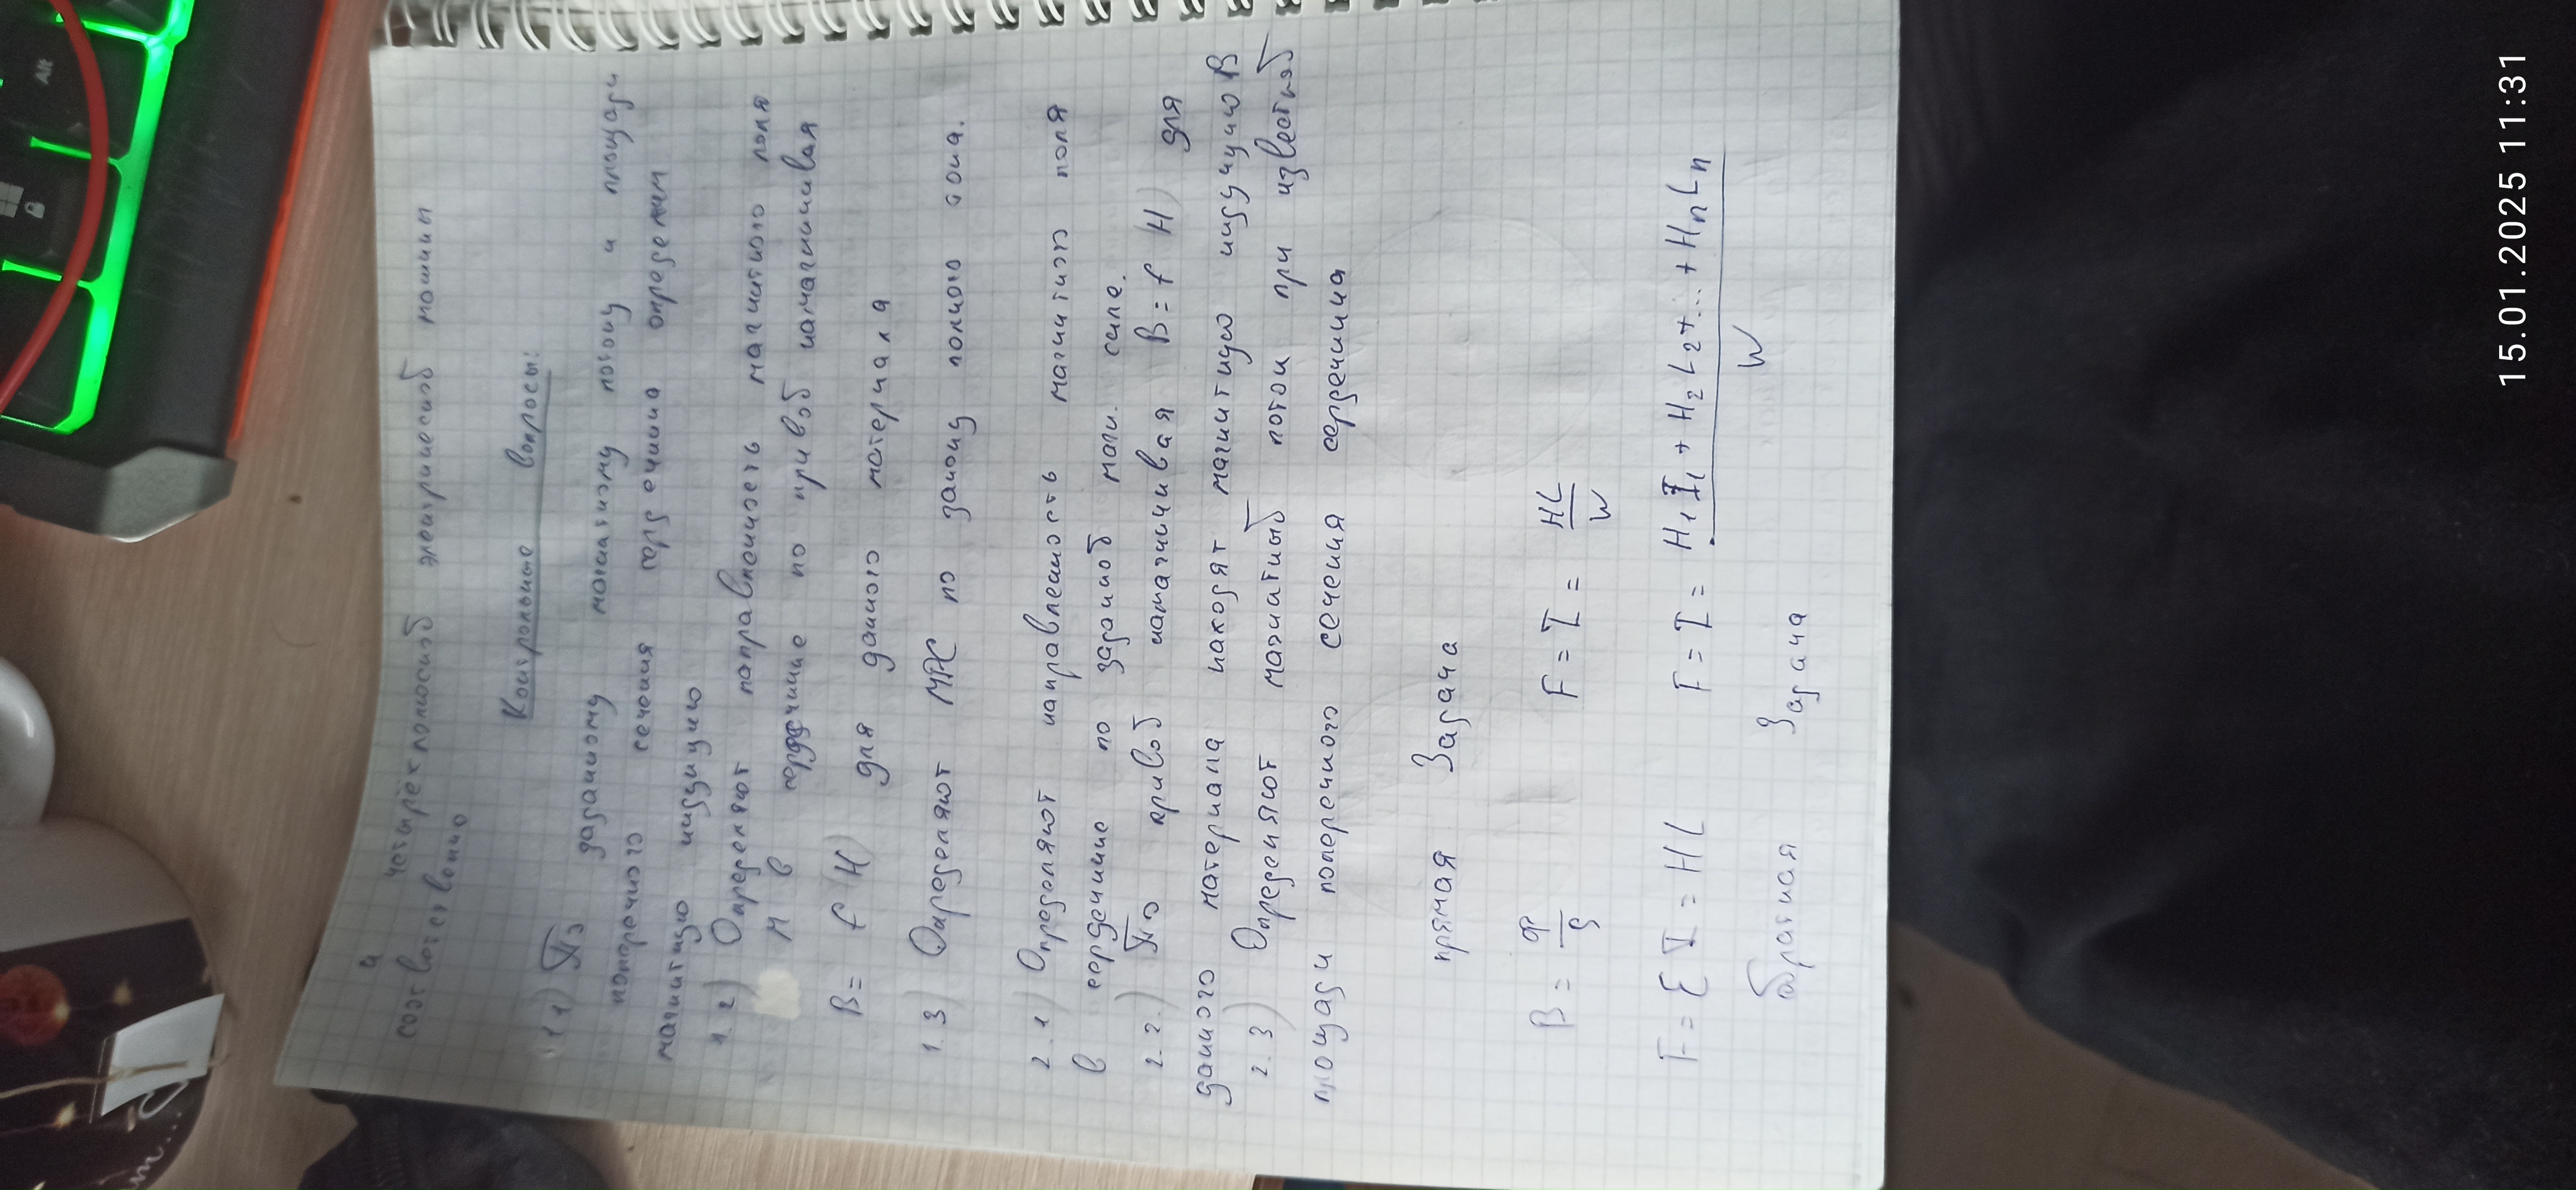 и четырёхполюсной электрической машины
соответственно
Контрольные вопросы:
1 1) По заданному магнитному потоку и площади
поперечного сечения сердечника определяем
магнитную индукцию
1. 2) Определяют направленность магнитного поля
H в сердечнике по кривой намагничивая
B = f (H) для данного материала
1. 3) Определяют МДС по закону полного тока.
2. 1) Определяют направленность магнитного поля
в сердечнике по заданной магн. силе.
2. 2.) По кривой намагничивая B = f (H) для
данного материала находят магнитную индукцию B
2. 3) Определяют магнитный поток при известной
площади поперечного сечения сердечника
прямая Задача
B = Ф/S F = I = HL/W
F = Σ I = HL F = I = H1 I1 + H2 L2 + ... + Hn Ln / W
обратная Задача
Alt
15.01.2025 11:31